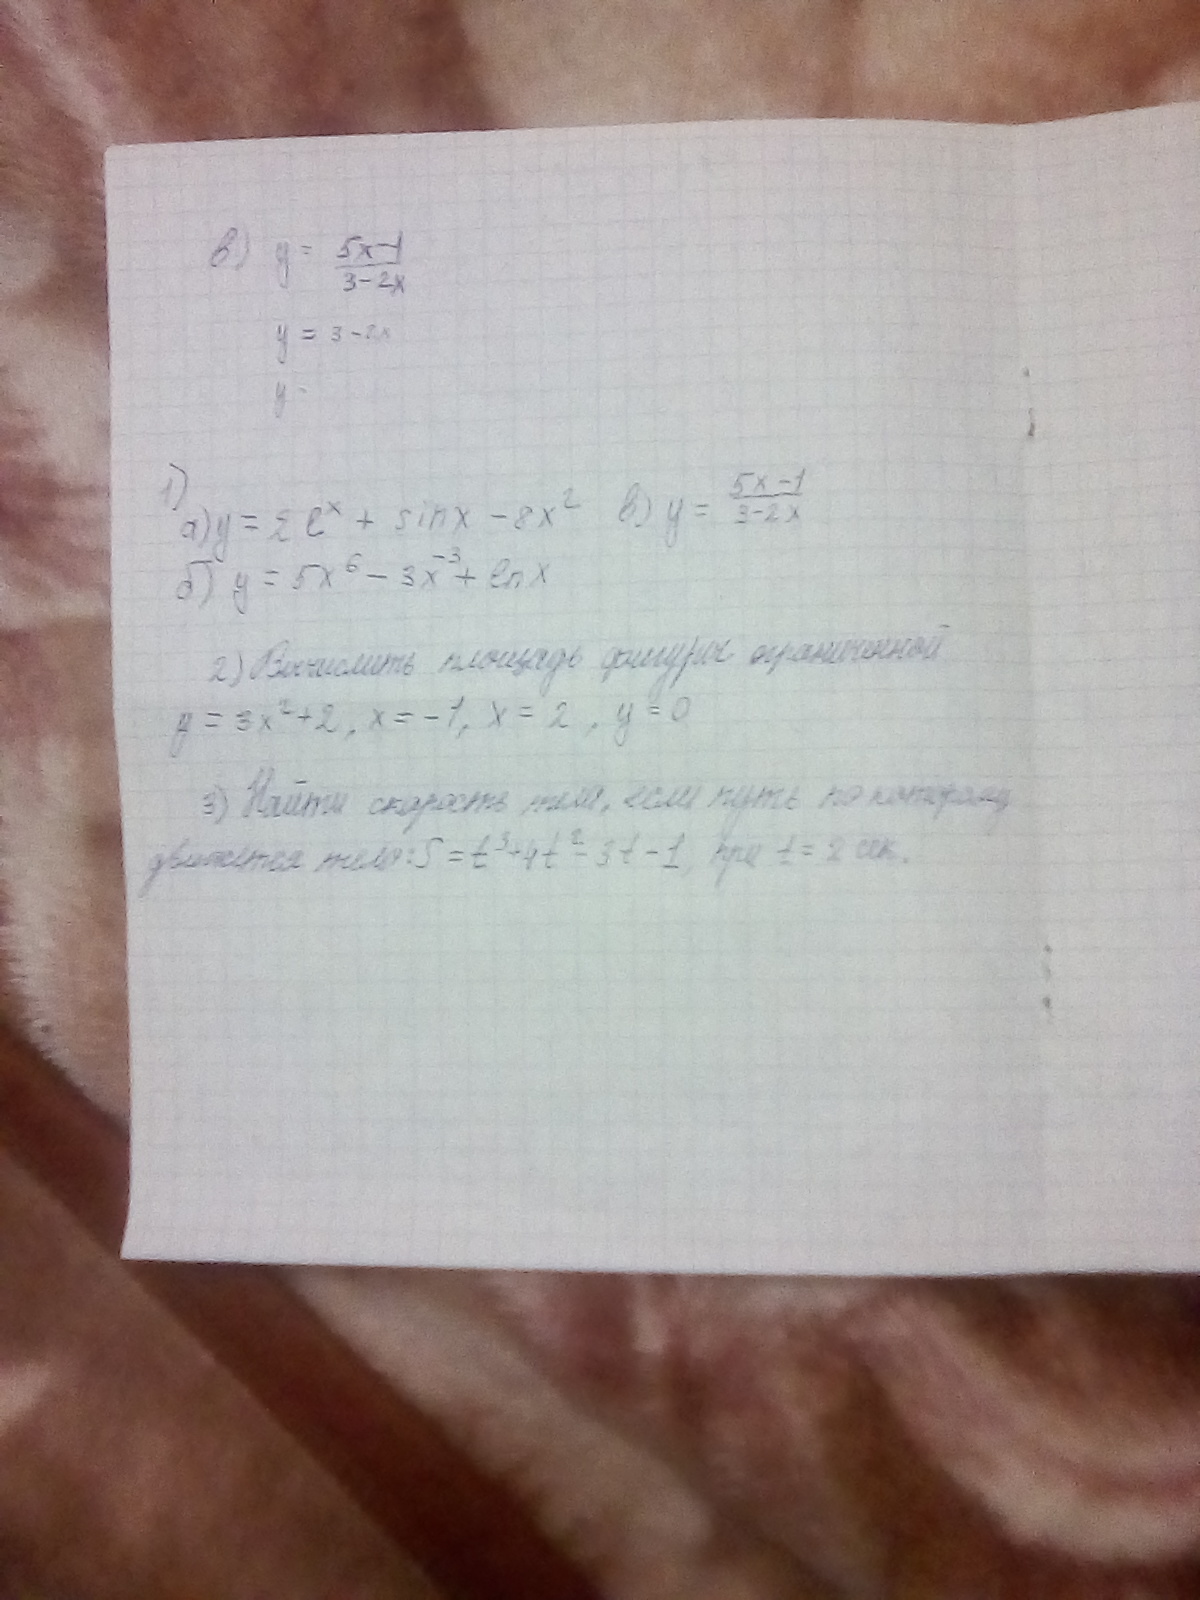 в) y = 5x-1 / 3-2x
y = 3-2x
y -
1)
а) y = 2e^x + sinx - 8x^2   в) y = 5x-1 / 3-2x
б) y = 5x^6 - 3x^-3 + lnx
2) Вычислить площадь фигуры ограниченной
y = 3x^2+2, x = -1, x = 2, y = 0
3) Найти скорость тела, если путь по которому
движется тело: S = t^3+4t^2-3t-1, при t = 2 сек.